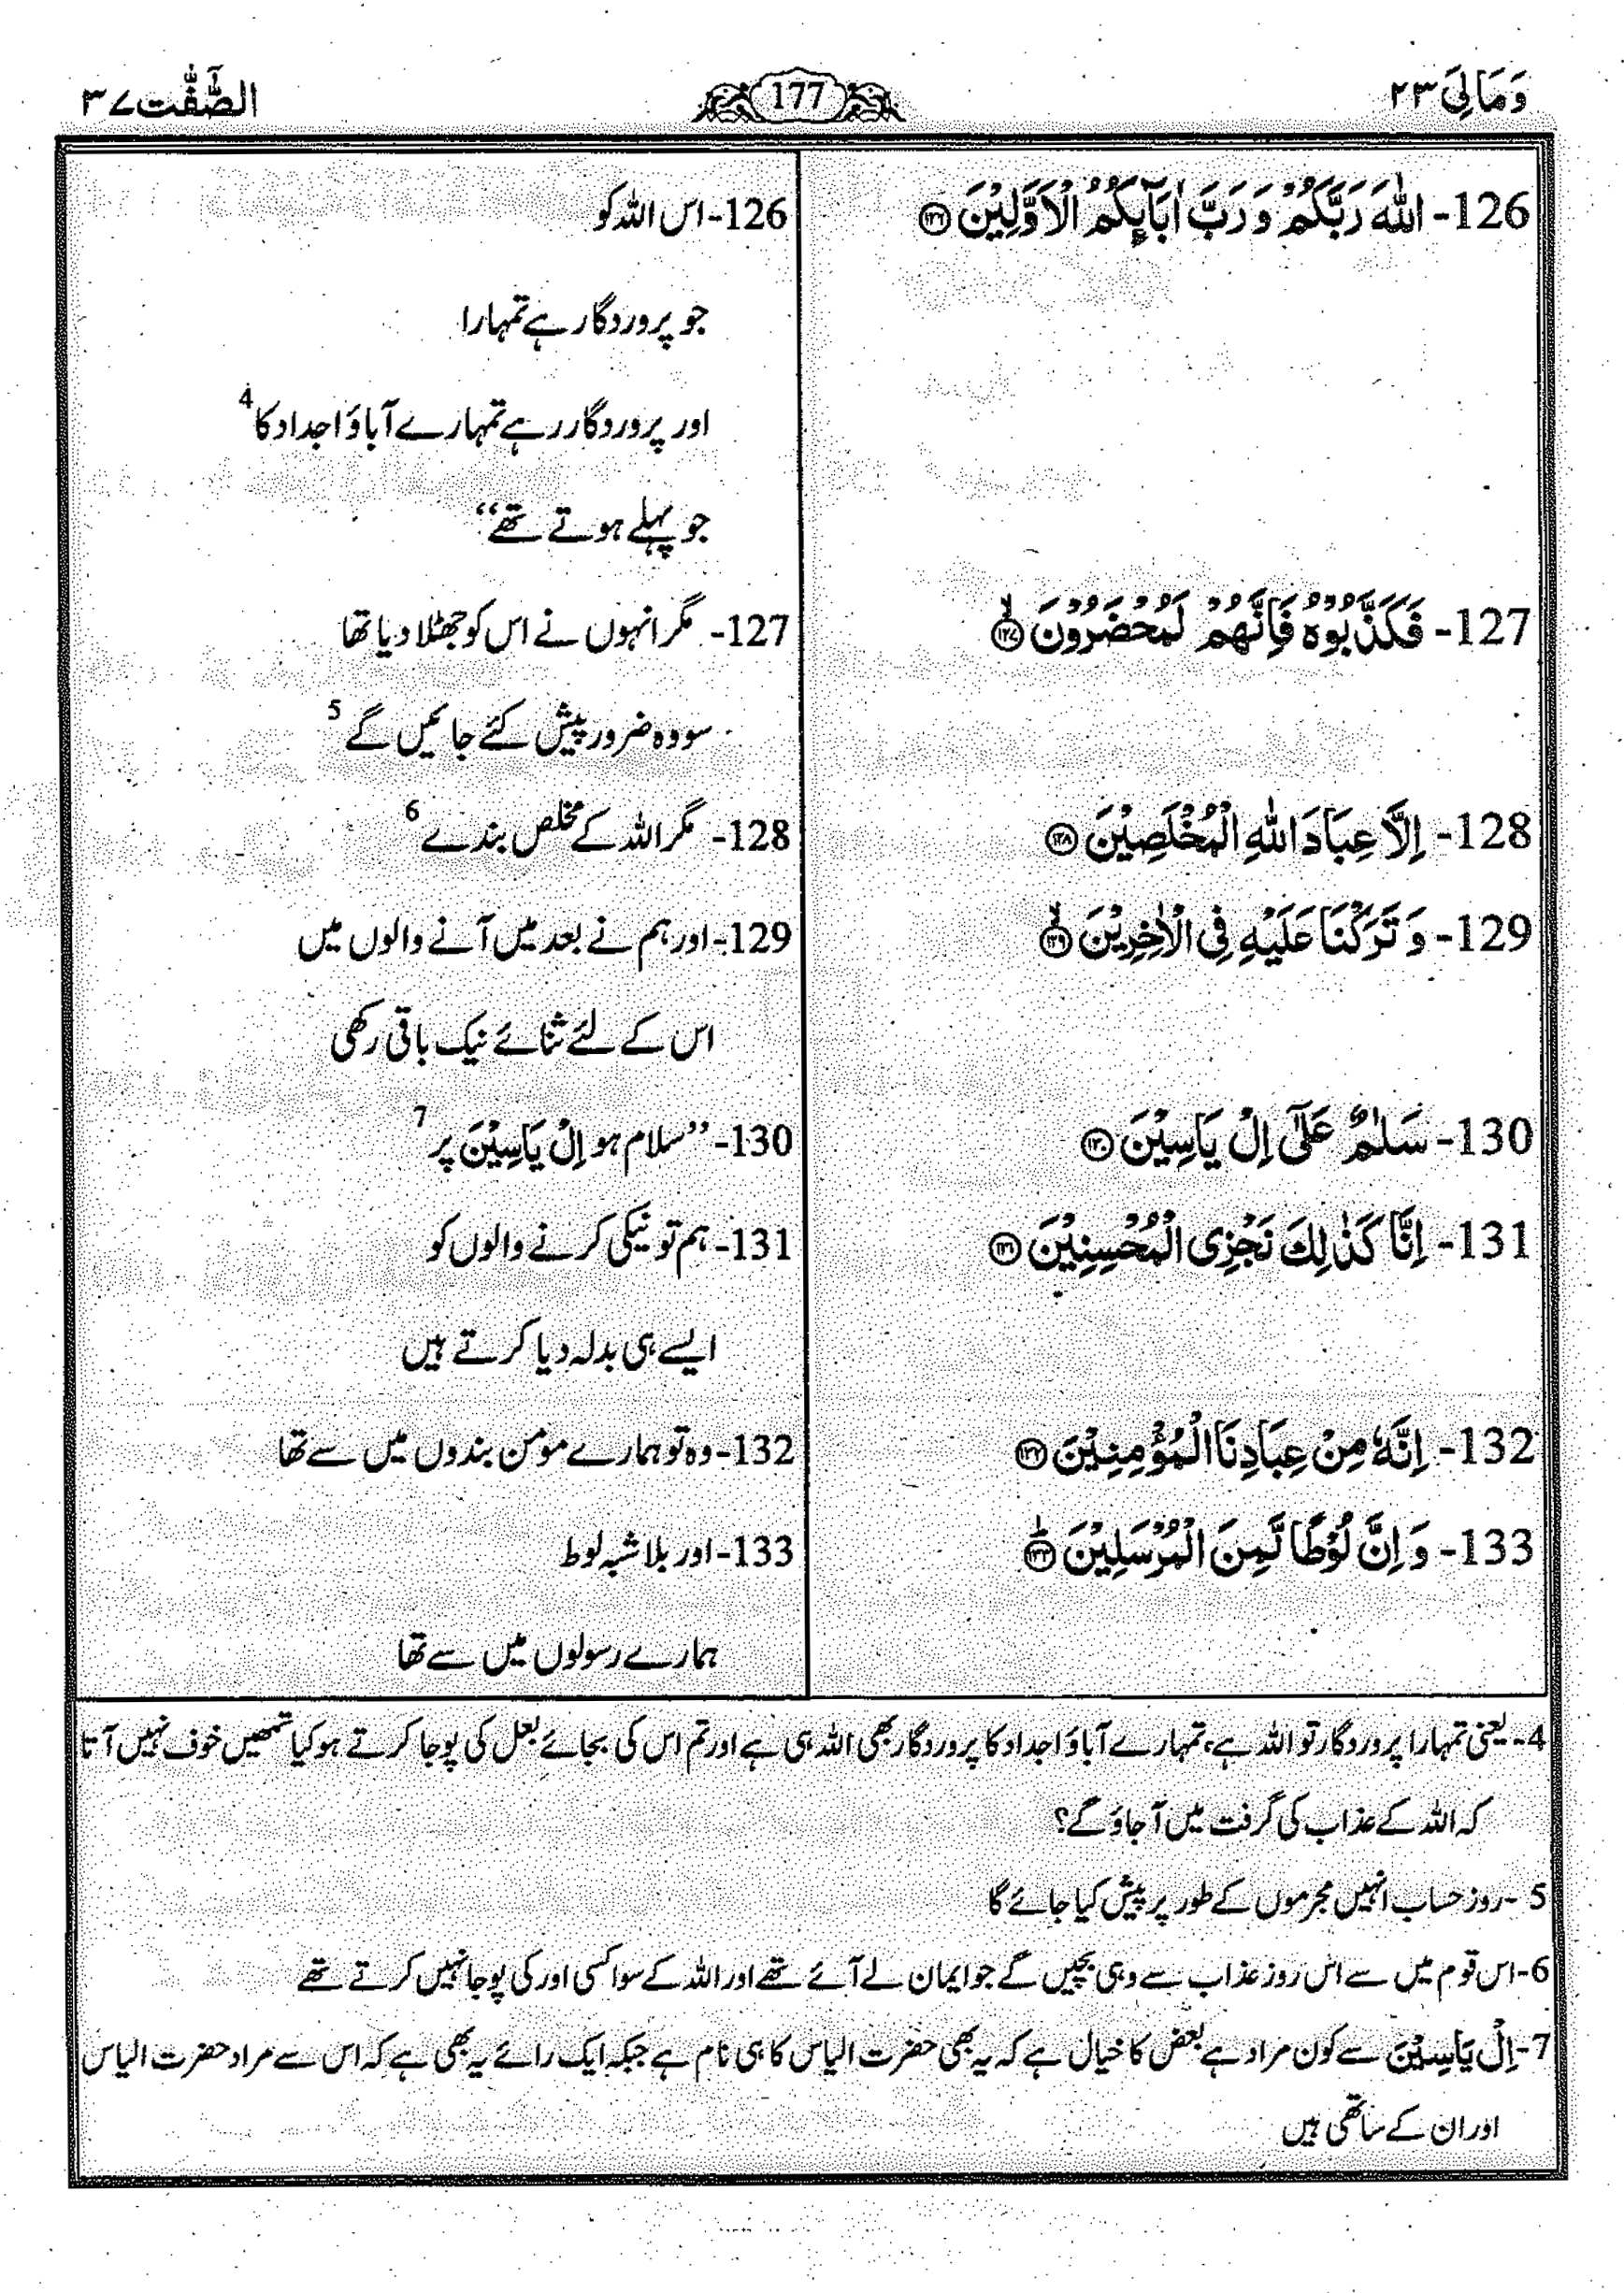 وَمَالِیَ ۲۳
177
الصّٰٓفّٰت ۳۷
126- اللّٰهَ رَبَّكُمْ وَ رَبَّ اٰبَآىِٕكُمُ الْاَوَّلِیْنَ ۝۱۲۶
126- اس اللہ کو
جو پروردگار ہے تمہارا
اور پروردگار رہے تمہارے آباؤ اجداد کا 4
جو پہلے ہوتے تھے“
127- فَكَذَّبُوْهُ فَاِنَّهُمْ لَمُحْضَرُوْنَ ۝۱۲۷ۙ
127- مگر انہوں نے اس کو جھٹلا دیا تھا
سو وہ ضرور پیش کئے جائیں گے 5
128- اِلَّا عِبَادَ اللّٰهِ الْمُخْلَصِیْنَ ۝۱۲۸
128- مگر اللہ کے مخلص بندے 6
129- وَ تَرَكْنَا عَلَیْهِ فِی الْاٰخِرِیْنَ ۝۱۲۹ۙ
129- اور ہم نے بعد میں آنے والوں میں
اس کے لئے ثنائے نیک باقی رکھی
130- سَلٰمٌ عَلٰۤی اِلْ یَاسِیْنَ ۝۱۳۰
130- ”سلام ہو اِلْ یَاسِیْنَ پر 7
131- اِنَّا كَذٰلِكَ نَجْزِی الْمُحْسِنِیْنَ ۝۱۳۱
131- ہم تو نیکی کرنے والوں کو
ایسے ہی بدلہ دیا کرتے ہیں
132- اِنَّهٗ مِنْ عِبَادِنَا الْمُؤْمِنِیْنَ ۝۱۳۲
132- وہ تو ہمارے مؤمن بندوں میں سے تھا
133- وَ اِنَّ لُوْطًا لَّمِنَ الْمُرْسَلِیْنَ ۝۱۳۳ؕ
133- اور بلا شبہ لوط
ہمارے رسولوں میں سے تھا
4- یعنی تمہارا پروردگار تو اللہ ہے، تمہارے آباؤ اجداد کا پروردگار بھی اللہ ہی ہے اور تم اس کی بجائے بعل کی پوجا کرتے ہو کیا تمھیں خوف نہیں آتا
کہ اللہ کے عذاب کی گرفت میں آ جاؤ گے؟
5- روز حساب انہیں مجرموں کے طور پر پیش کیا جائے گا
6- اس قوم میں سے اس روز عذاب سے وہی بچیں گے جو ایمان لے آئے تھے اور اللہ کے سوا کسی اور کی پوجا نہیں کرتے تھے
7- اِلْ یَاسِیْنَ سے کون مراد ہے بعض کا خیال ہے کہ یہ بھی حضرت الیاس کا ہی نام ہے جبکہ ایک رائے یہ بھی ہے کہ اس سے مراد حضرت الیاس
اور ان کے ساتھی ہیں